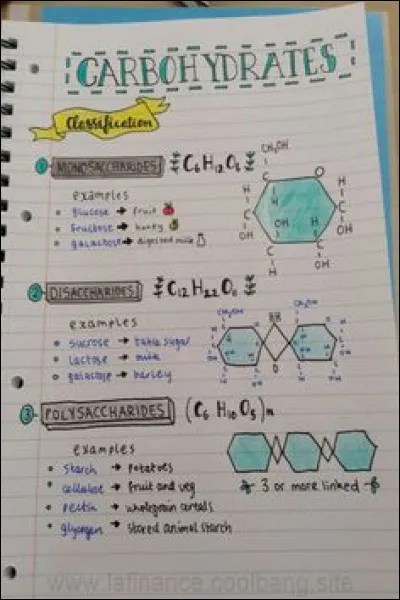 CARBOHYDRATES
Classification
1 MONOSACCHARIDES C6H12O6
examples
glucose → fruit
fructose → honey
galactose → digested milk
CH2OH
C
O
H
C
H
OH
H
H
C
OH
C
OH
C
H
2 DISACCHARIDES C12H22O11
examples
sucrose → table sugar
lactose → milk
galactose → barley
CH2OH
CH2OH
O
3 POLYSACCHARIDES (C6H10O5)n
examples
starch → potatoes
cellulose → fruit and veg
pectin → wholegrain cereals
glycogen → stored animal starch
3 or more linked
www.lafinanca.coolbang.site